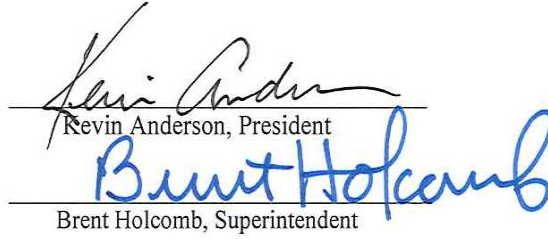 Kevin Anderson
Kevin Anderson, President
Brent Holcomb
Brent Holcomb, Superintendent